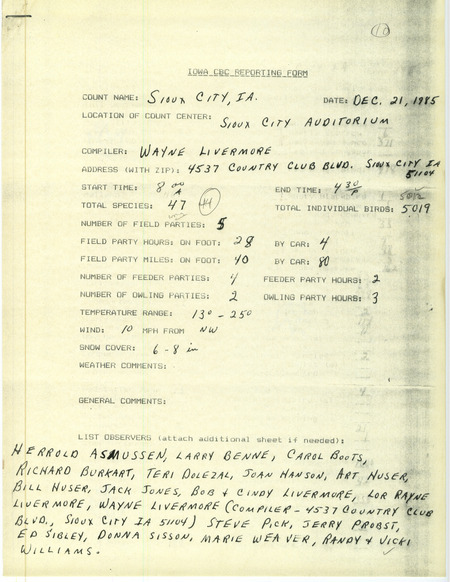 10
IOWA CBC REPORTING FORM
COUNT NAME: SIOUX CITY, IA. DATE: DEC. 21, 1985
LOCATION OF COUNT CENTER: SIOUX CITY AUDITORIUM
COMPILER: WAYNE LIVERMORE
ADDRESS (WITH ZIP): 4537 COUNTRY CLUB BLVD. SIOUX CITY IA
51104
START TIME: 8 00 A END TIME: 4 30 P
5012
TOTAL SPECIES: 47 44 TOTAL INDIVIDUAL BIRDS: 5019
NUMBER OF FIELD PARTIES: 5
FIELD PARTY HOURS: ON FOOT: 28 BY CAR: 4
FIELD PARTY MILES: ON FOOT: 40 BY CAR: 80
NUMBER OF FEEDER PARTIES: 4 FEEDER PARTY HOURS: 2
NUMBER OF OWLING PARTIES: 2 OWLING PARTY HOURS: 3
TEMPERATURE RANGE: 13° - 25°
WIND: 10 MPH FROM NW
SNOW COVER: 6 - 8 in
WEATHER COMMENTS:
GENERAL COMMENTS:
LIST OBSERVERS (attach additional sheet if needded):
HERROLD ASMUSSEN, LARRY BENNE, CAROL BOOTS,
RICHARD BURKART, TERI DOLEZAL, JOAN HANSON, ART HUSER,
BILL HUSER, JACK JONES, BOB & CINDY LIVERMORE, LOR RAYNE
LIVERMORE, WAYNE LIVERMORE (COMPILER - 4537 COUNTRY CLUB
BLVD., SIOUX CITY IA 51104) STEVE PICK, JERRY PROBST,
ED SIBLEY, DONNA SISSON, MARIE WEAVER, RANDY & VICKI
WILLIAMS.